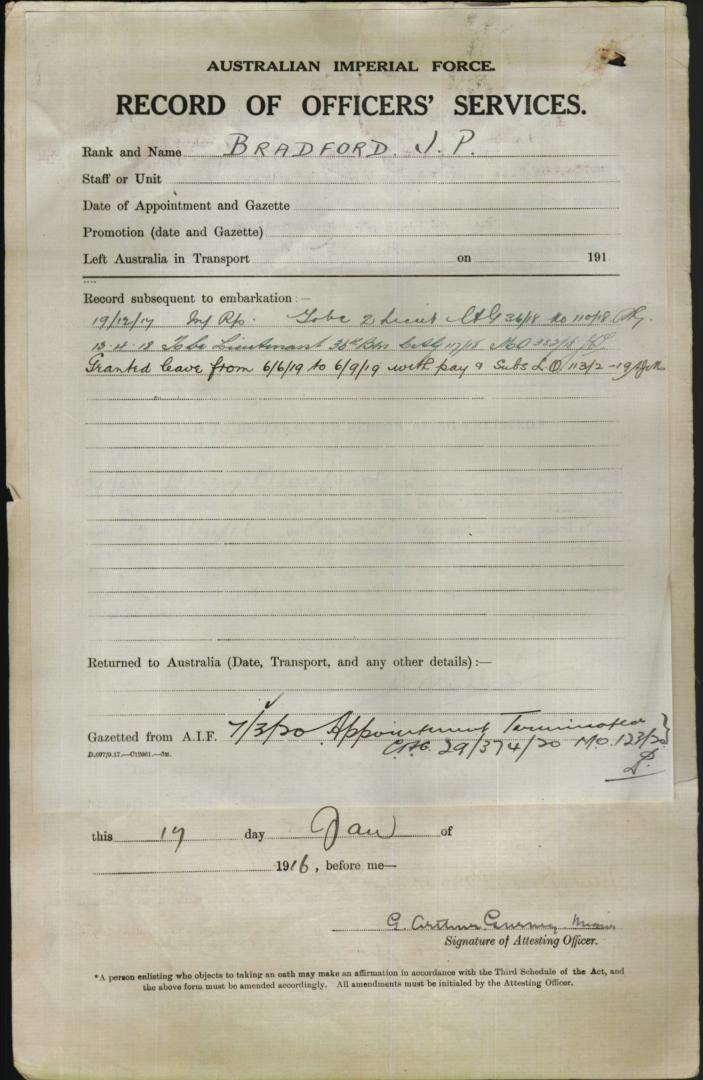 AUSTRALIAN IMPERIAL FORCE.
RECORD OF OFFICERS' SERVICES.
Rank and Name BRADFORD. J. P.
Staff or Unit
Date of Appointment and Gazette
Promotion (date and Gazette)
Left Australia in Transport on 191
Record subsequent to embarkation:—
19/12/17 Inf Rfs. To be 2 Lieut CAG 36/18 MO 110/18
13-4-18 To be Lieutenant CAG 117/18 MO 352/18
Granted leave from 6/6/19 to 6/9/19 with pay & Subs L.O. 113/2-19
Returned to Australia (Date, Transport, and any other details):—
Gazetted from A.I.F. 7/3/20 Appointment Terminated
CAG. 29/374/20 MO. 123/20
D.697/9.17.—C12661.—5M.
this 17 day Jan of
1916, before me—
G. Arthur
Signature of Attesting Officer.
*A person enlisting who objects to taking an oath may make an affirmation in accordance with the Third Schedule of the Act, and
the above form must be amended accordingly. All amendments must be initialed by the Attesting Officer.